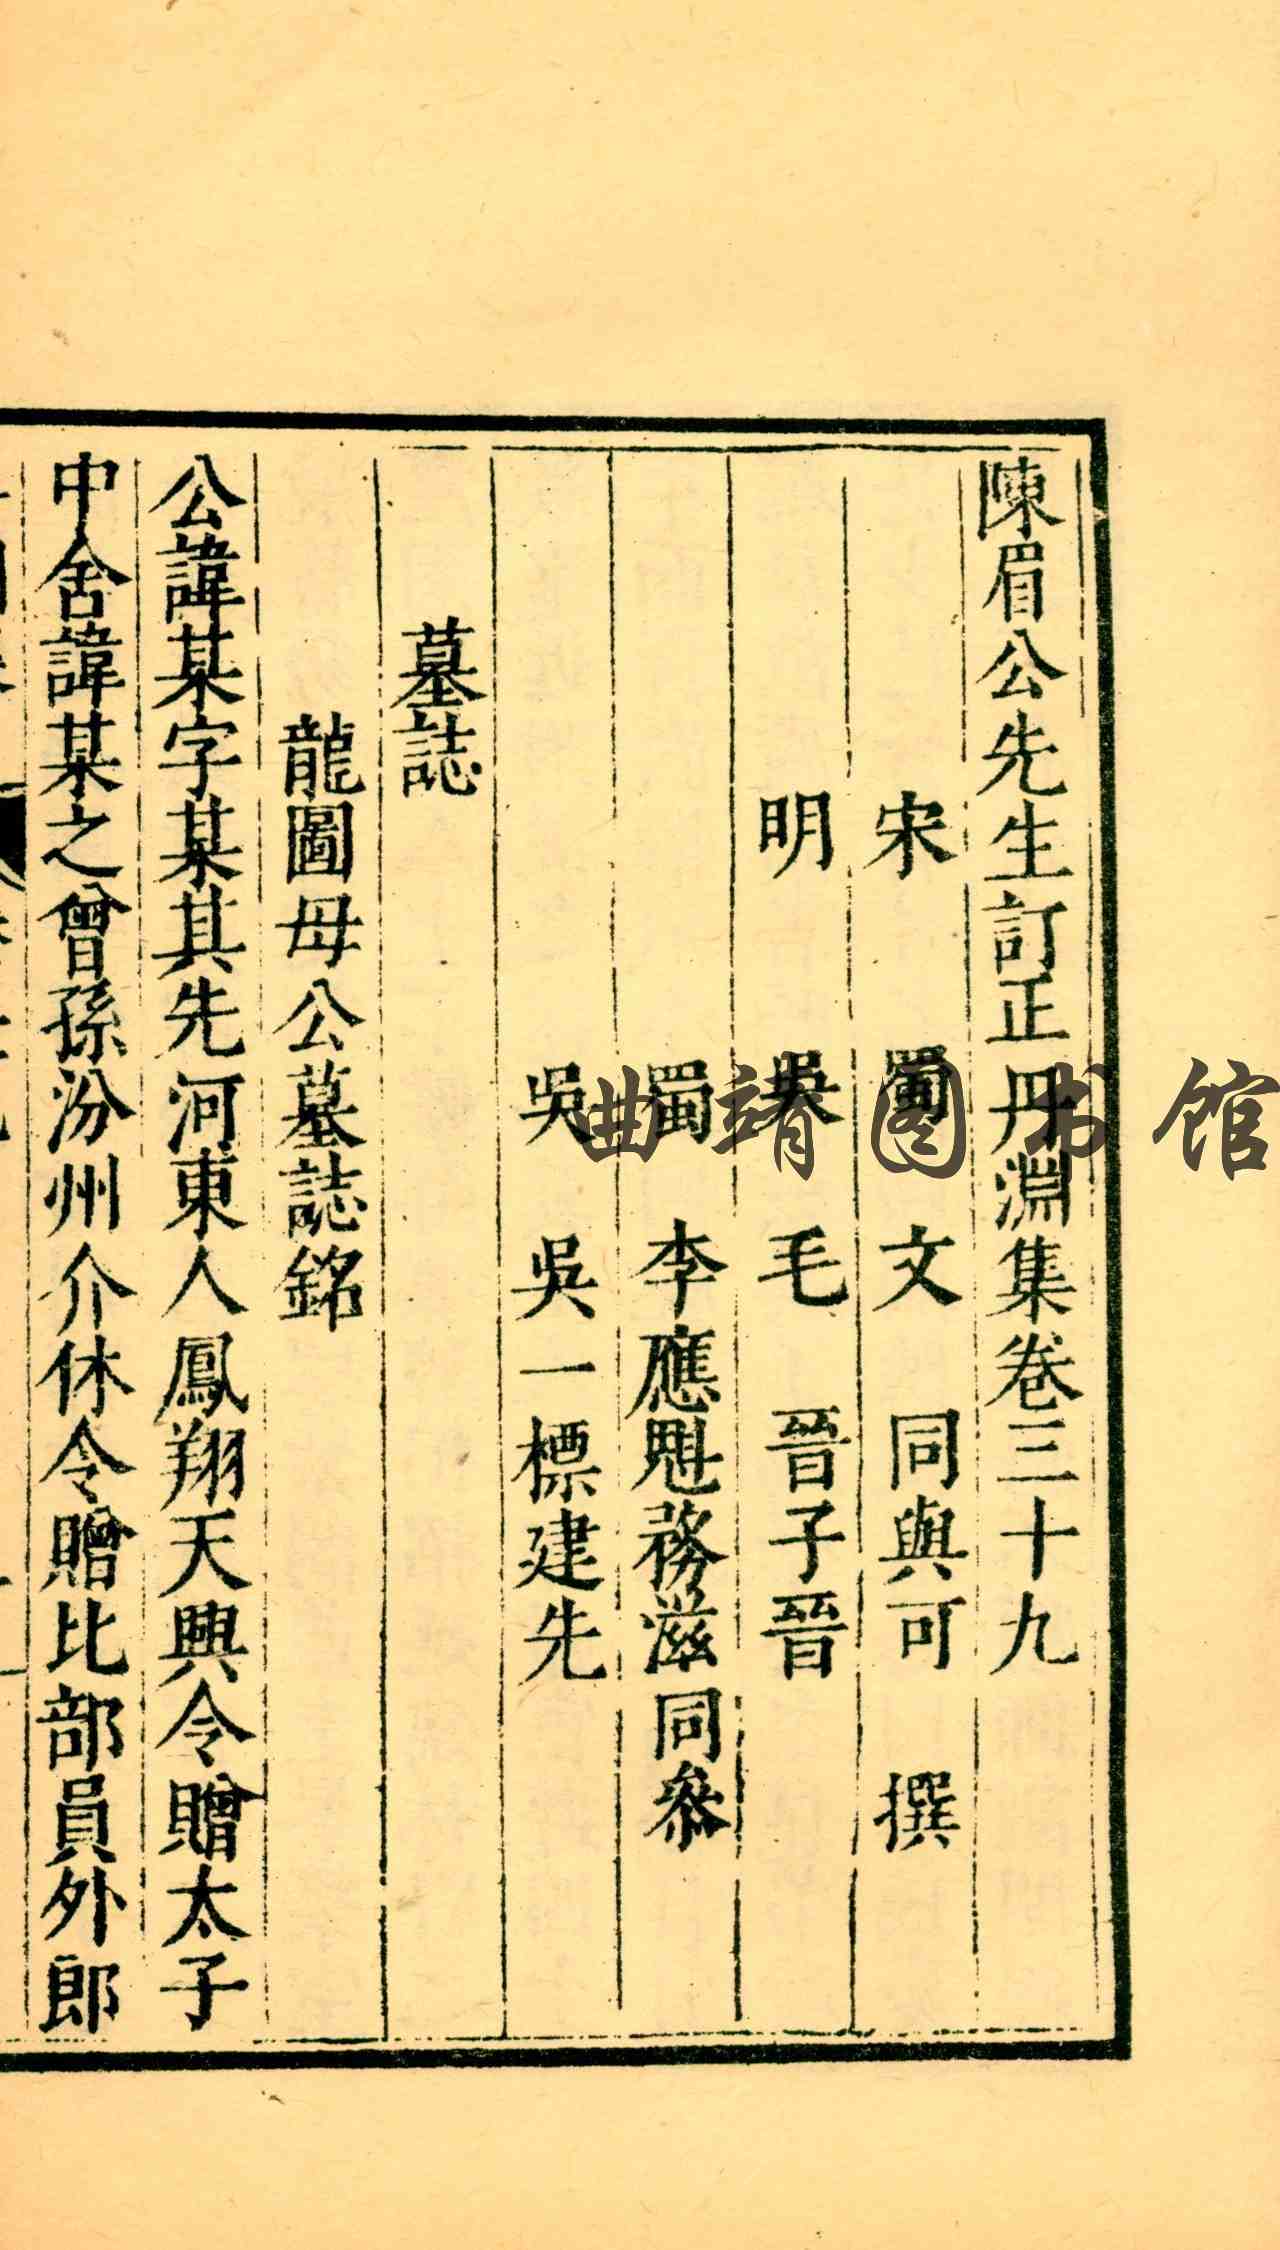 陳眉公先生訂正丹淵集卷三十九
宋 蜀 文 同與可 撰
明 吳 毛 晉子晉
蜀 李應魁務滋同叅
吳 吳一標建先
墓誌
龍圖母公墓誌銘
公諱某字某其先河東人鳳翔天興令贈太子
中舍諱某之曾孫汾州介休令贈比部員外郎
曲靖图书馆